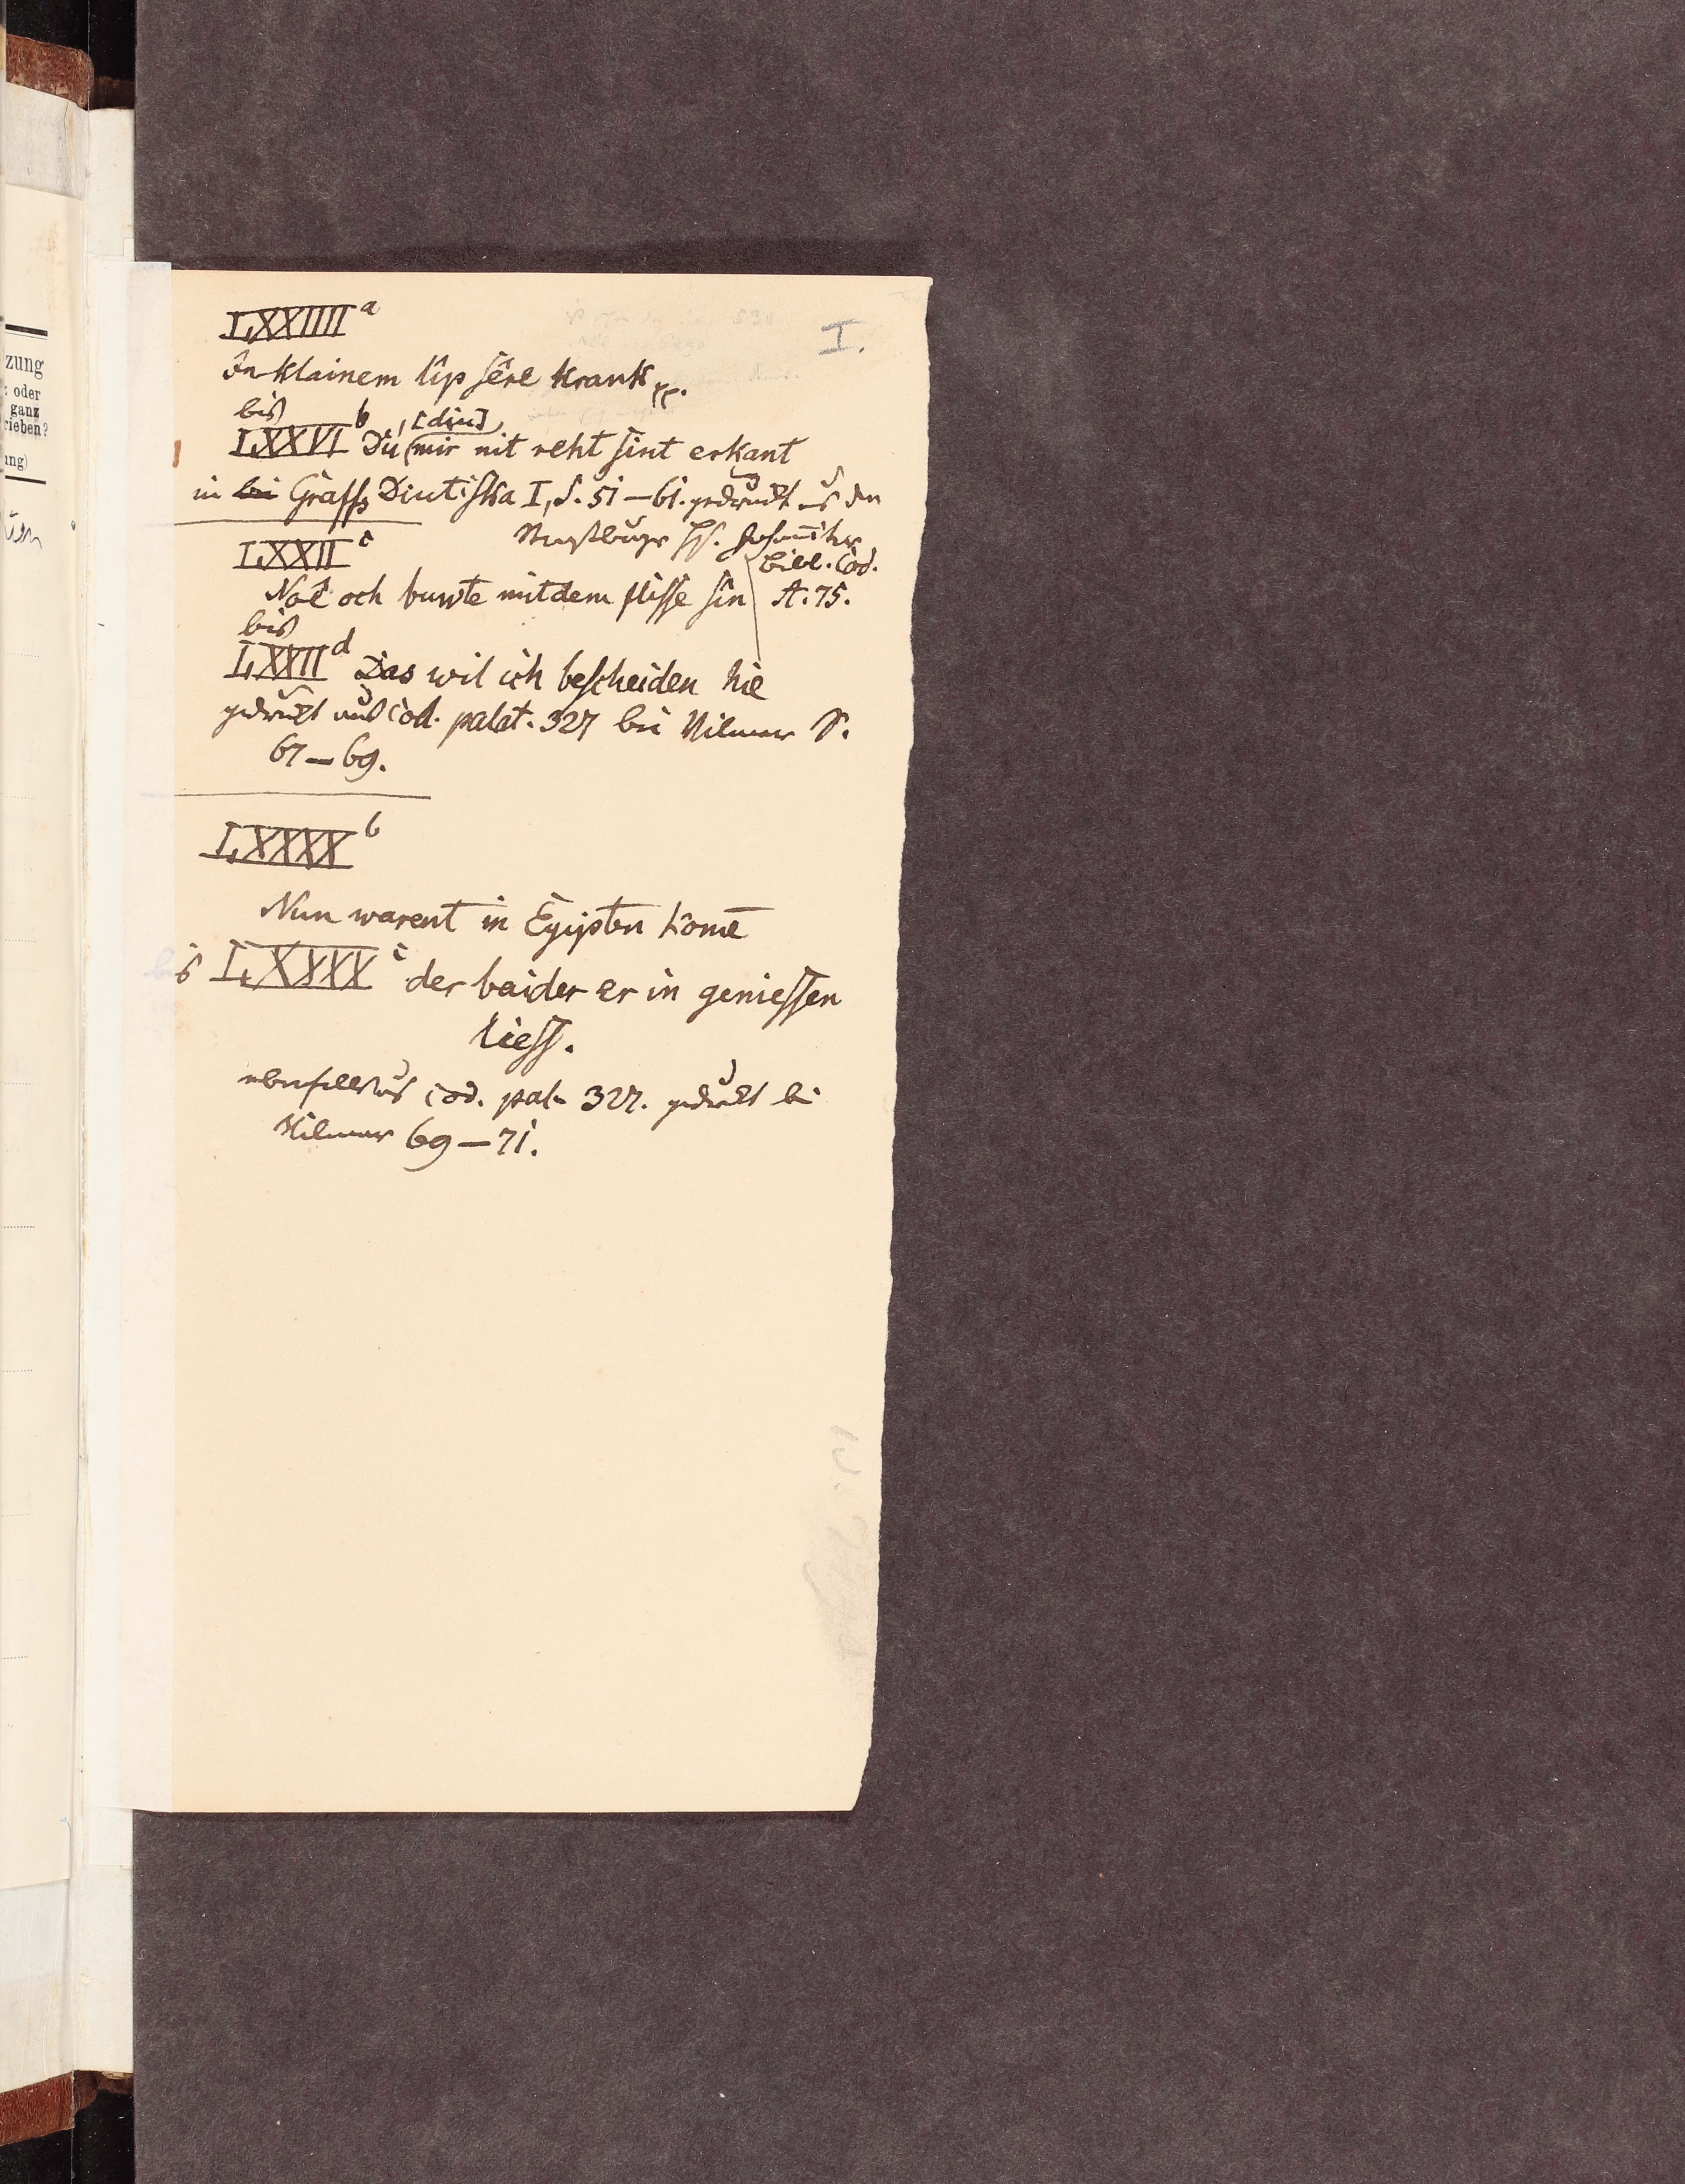 I.
LXXIIII a
In klainem lip sêre krank
bis
LXXVI b Dú, [diu] mir nit reht sint erkant
in bei Graffs Diutiska I, S. 51—61. gedruckt aus den
Augsburger Hs. Johanniter
Bibl. Cod.
A. 75.
LXXII c
Noe och buwte mit dem flisse sin
bis
LXXII d Das wil ich bescheiden hie
gedruckt aus Cod. palat. 327 bei Vilmar S.
67—69.
LXXXX b
Nun warent in Egypten kome
bis LXXXX c der baider er in geniessen
liess.
ebenfalls aus Cod. pal. 327. gedruckt bei
Vilmar 69—71.
zung
: oder
ganz
rieben?
ung)